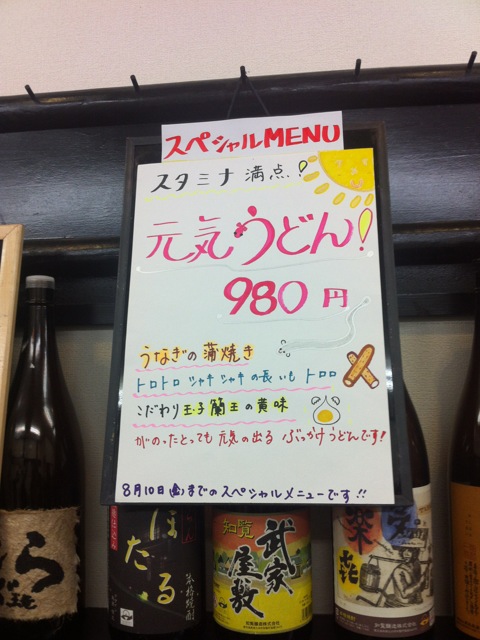 スペシャルMENU
スタミナ満点!
元気うどん!
980円
うなぎの蒲焼き
トロトロシャキシャキの長いもトロロ
こだわり玉子蘭王の黄味
がのったとっても元気の出るぶっかけうどんです!
8月10日(金)までのスペシャルメニューです!!
ほたる
本格焼酎
知覧
武家
屋敷